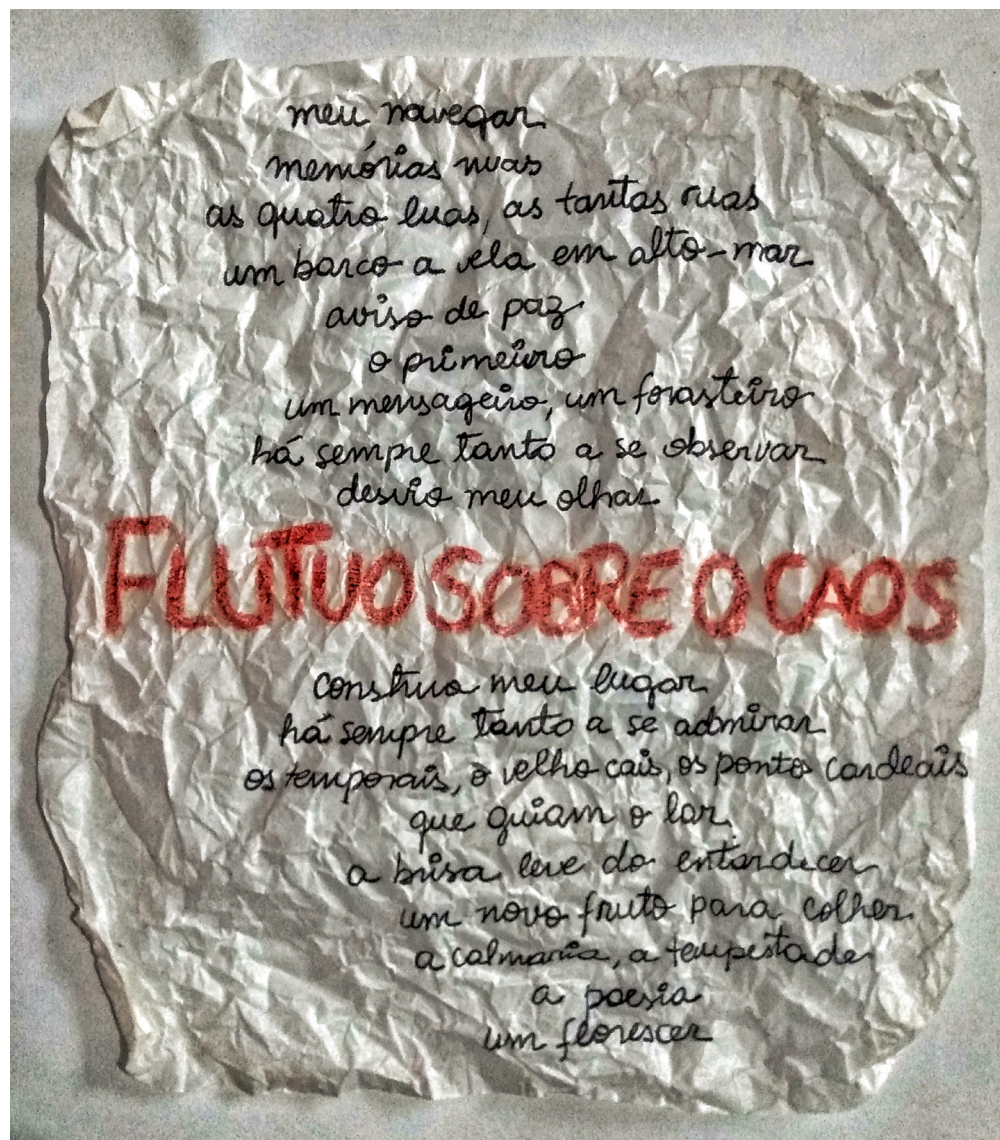 meu navegar
memórias nuas
as quatro luas, as tantas ruas
um barco a vela em alto-mar
aviso de paz
o primeiro
um mensageiro, um forasteiro
há sempre tanto a se observar
desvio meu olhar
FLUTUO SOBRE O CAOS
construo meu lugar
há sempre tanto a se admirar
os temporais, o velho cais, os pontos cardeais
que guiam o lar
a brisa leve do entardecer
um novo fruto para colher
a calmaria, a tempestade
a poesia
um florescer